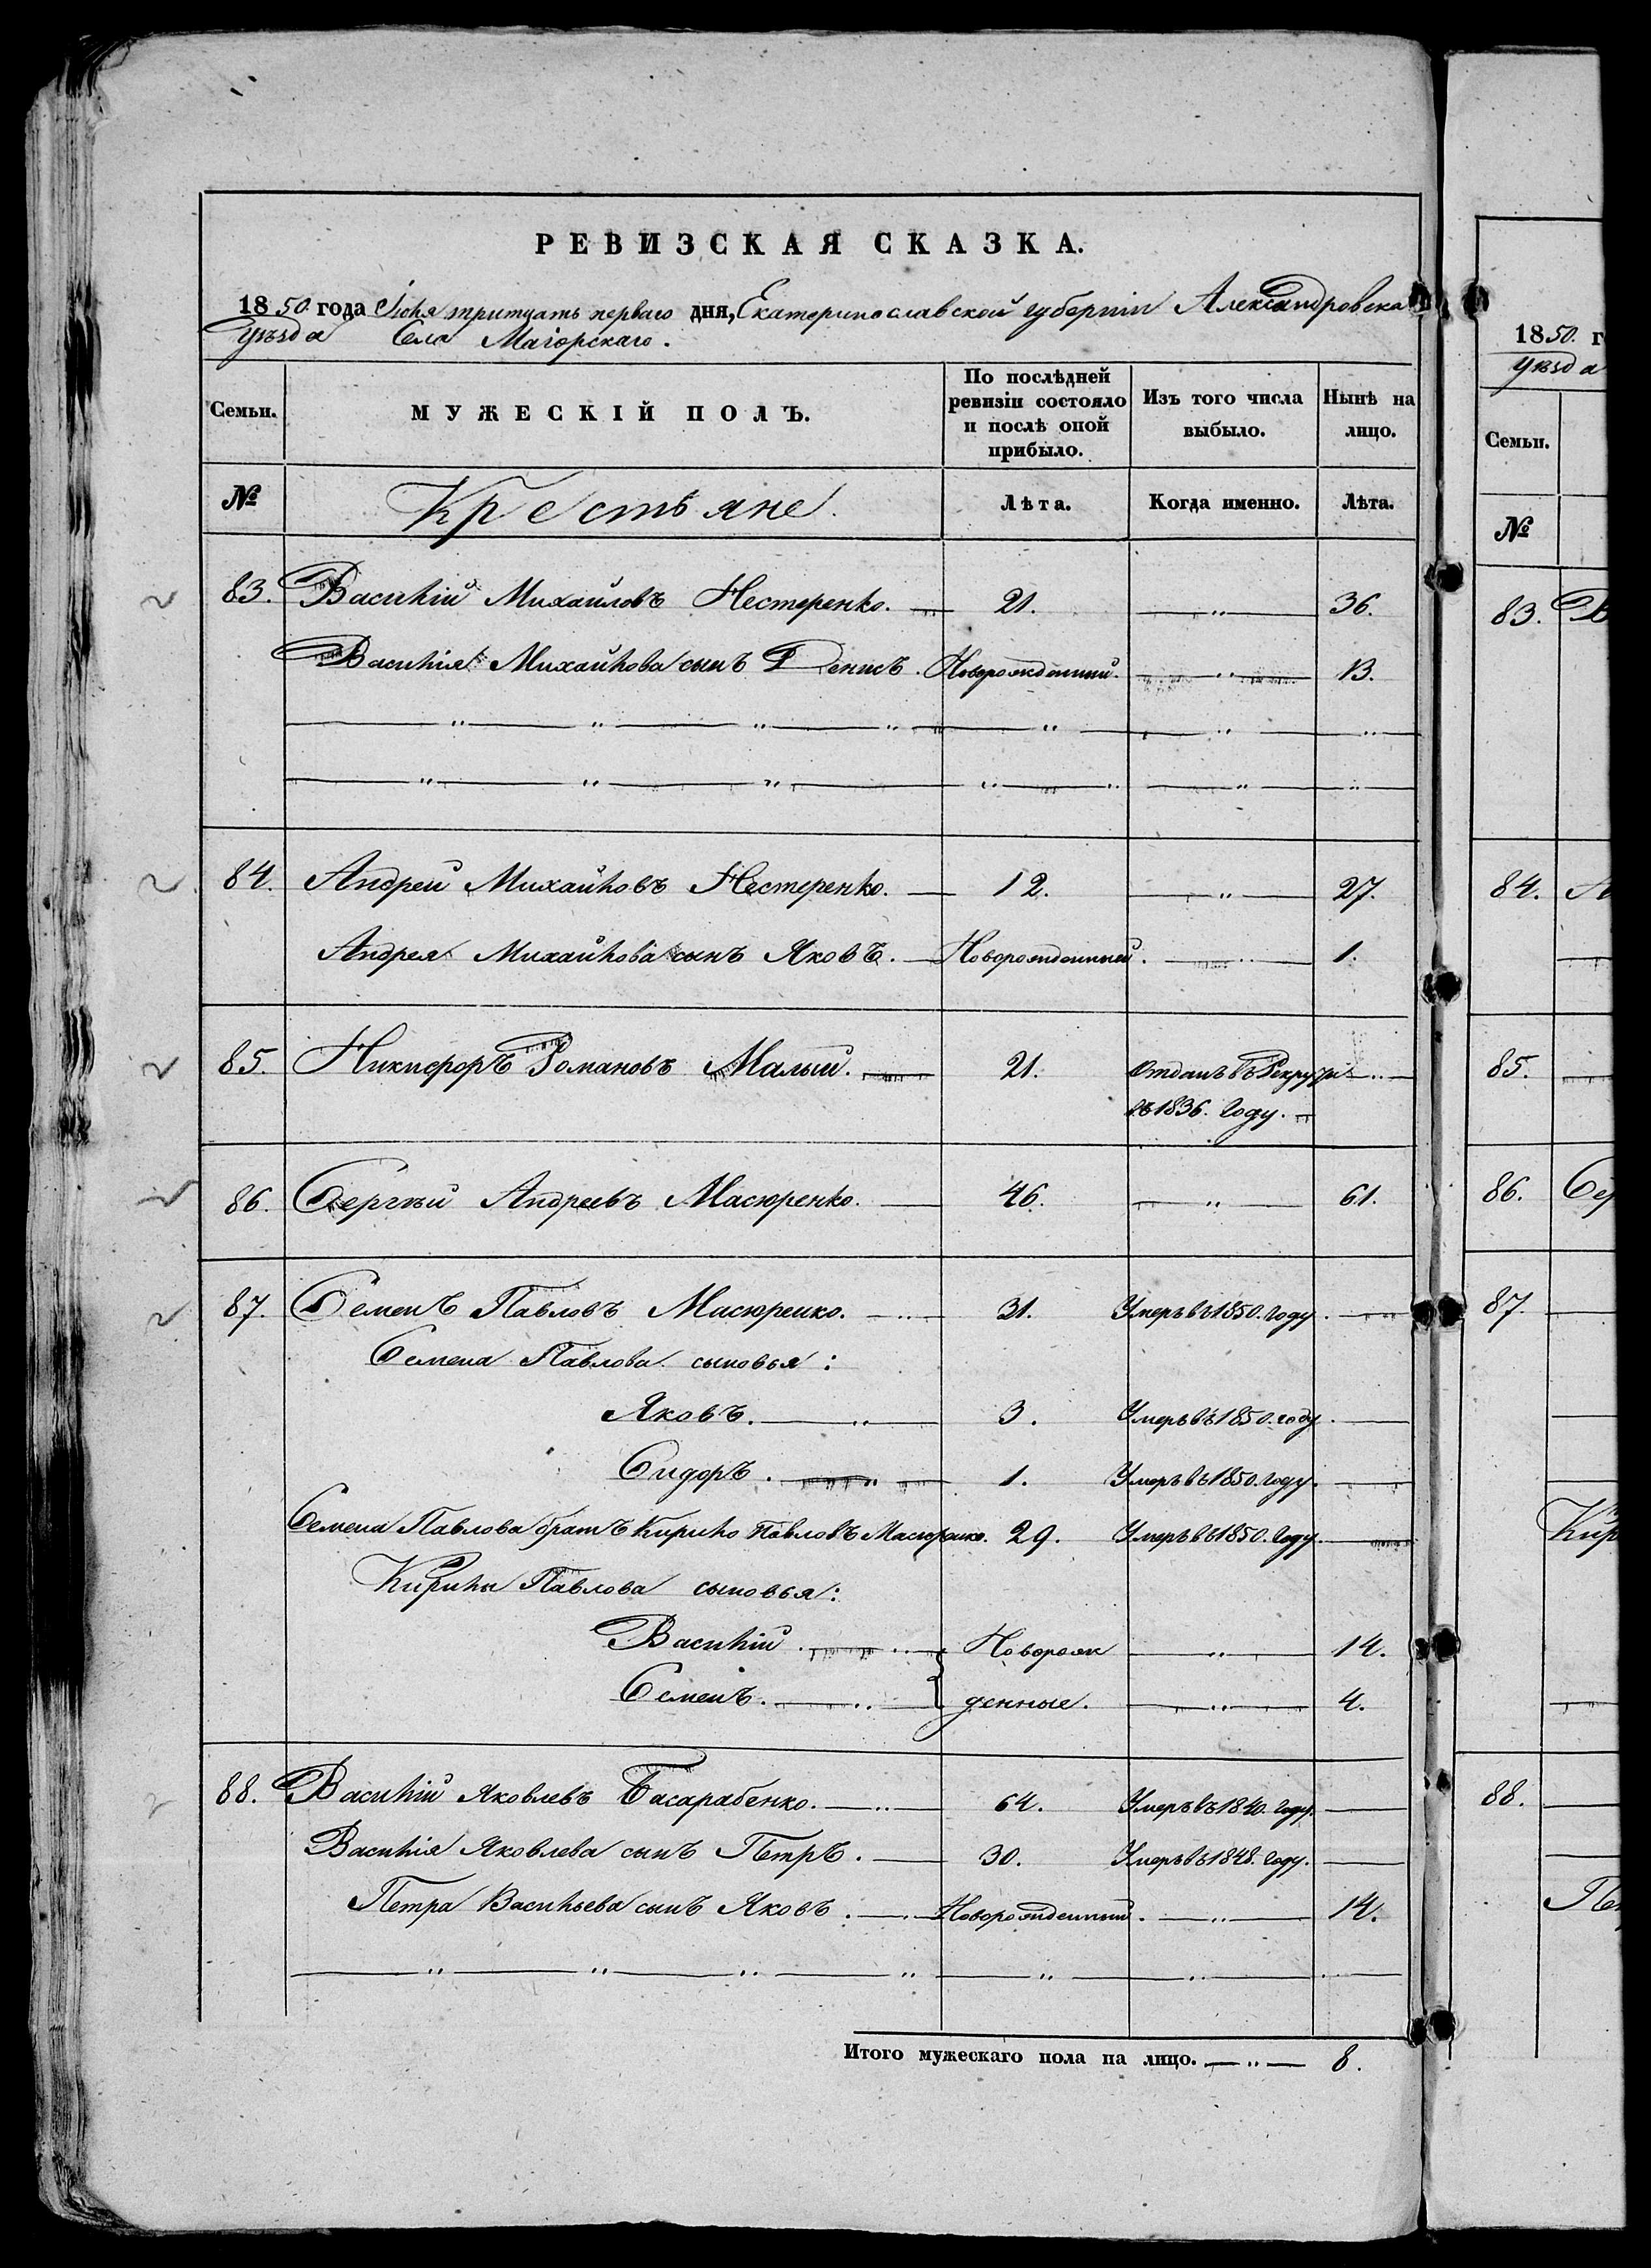 РЕВИЗСКАЯ СКАЗКА.
1850. года Іюля тритцать перваго дня, Екатеринославской губерніи Александровска
уѣзда Села Маіорскаго.
Семьи. МУЖЕСКІЙ ПОЛЪ. По послѣдней ревизіи состояло и послѣ оной прибыло. Изъ того числа выбыло. Нынѣ на лицо.
№ Крестьяне. Лѣта. Когда именно. Лѣта.
83. Василій Михайловъ Нестеренко. 21. „ 36.
Василія Михайлова сынъ Денисъ. Новорожденный. „ 13.
84. Андрей Михайловъ Нестеренко. 12. „ 27.
Андрея Михайлова сынъ Яковъ. Новорожденный. „ 1.
85. Никифоръ Романовъ Малый. 21. Отданъ въ Рекруты
въ 1836. году.
86. Сергѣй Андреевъ Масюренко. 46. „ 61.
87. Семенъ Павловъ Масюренко. 31. Умеръ въ 1850. году.
Семена Павлова сыновья:
Яковъ. 3. Умеръ въ 1850. году.
Сидоръ. 1. Умеръ въ 1850. году.
Семена Павлова братъ Кирило Павловъ Масюренко. 29. Умеръ въ 1850. году.
Кирилы Павлова сыновья:
Василій. Поворож „ 14.
Семенъ. денные. „ 4.
88. Василій Яковлевъ Басарабенко. 64. Умеръ въ 1840. году.
Василія Яковлева сынъ Петръ. 30. Умеръ въ 1848. году.
Петра Васильева сынъ Яковъ. Новорожденный. „ 14.
Итого мужескаго пола на лицо. „ 8.
1850. г
уѣзда
Семьи.
№
83. В
84. А
85.
86. Сер
87.
Кир
88.
Пе